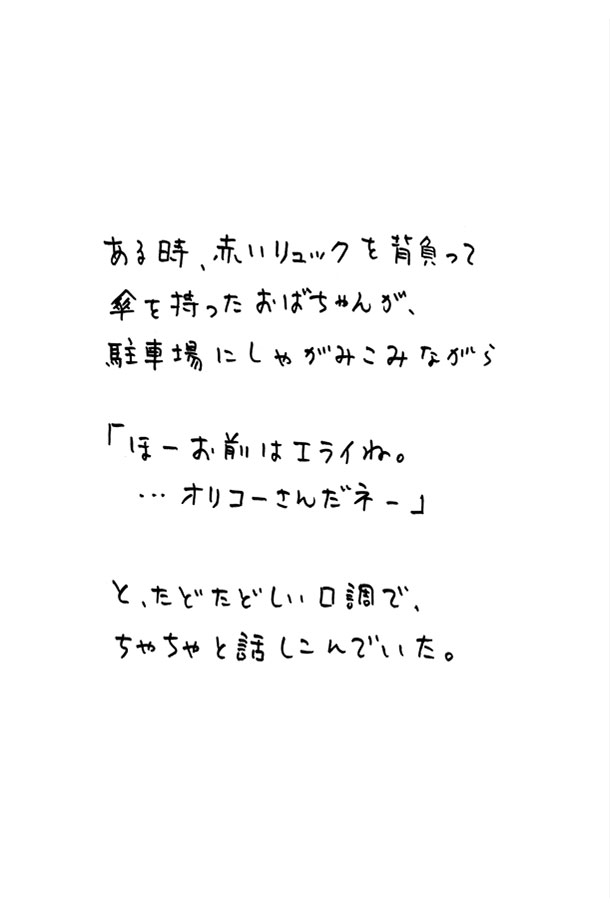 ある時、赤いリュックを背負って
傘を持ったおばちゃんが、
駐車場にしゃがみこみながら
「ほーお前はエライね。
…オリコーさんだネー」
と、たどたどしい口調で、
ちゃちゃと話しこんでいた。